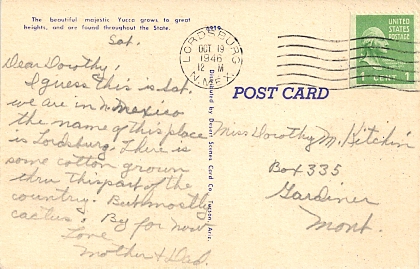 The beautiful majestic Yucca grows to great
heights, and are found throughout the State.
Sat.
Dear Dorothy,
I guess this is Sat.
we are in n. mexico
the name of this place
is Lordsburg. There is
some cotton grown
thru this part of the
country. But mostly
cactus. By for now
Love
Mother & Dad.
LORDSBURG
OCT 19
1946
12 - M
N. MEX.
UNITED STATES
POSTAGE
1 CENT 1
POST CARD
Distributed by Desert Scenes Card Co., Tucson, Ariz.
Miss Dorothy M. Kitchin
Box 335
Gardiner
Mont.